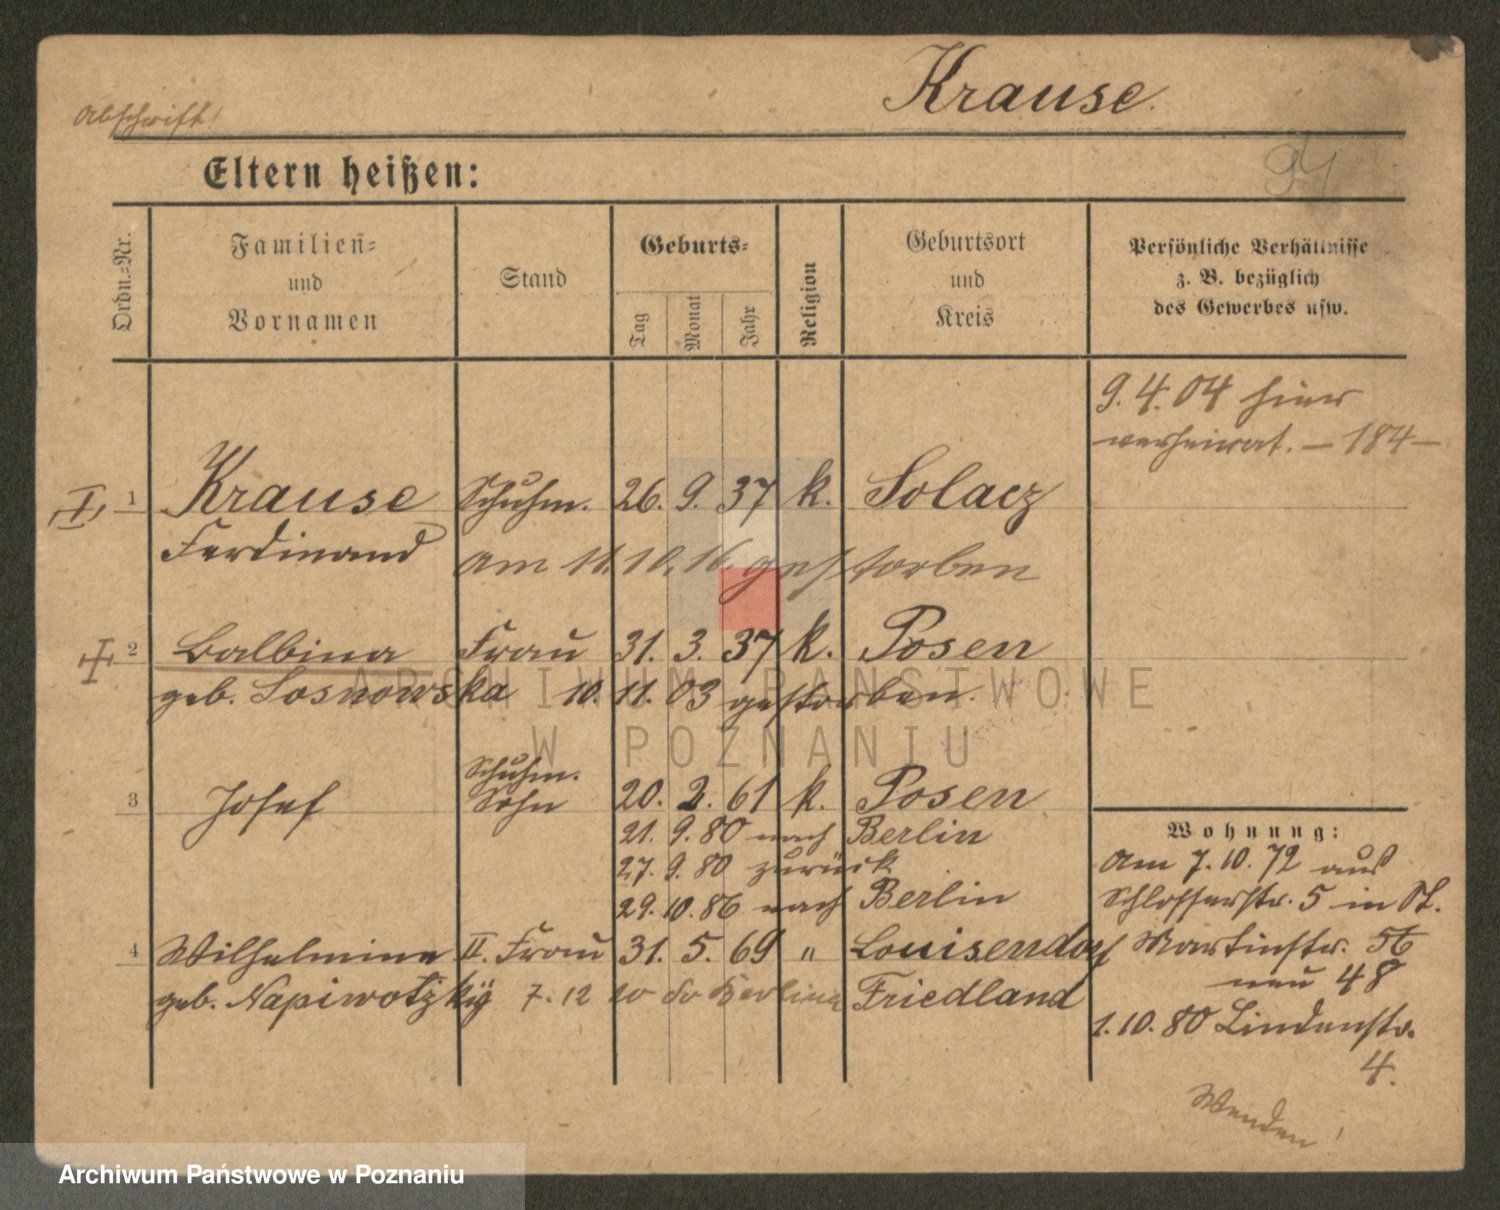 Krause.
Abschrift!
Eltern heißen:
94
Ordn.-Nr.
Familien-
und
Vornamen
Stand
Geburts-
Tag
Monat
Jahr
Religion
Geburtsort
und
Kreis
Persönliche Verhältnisse
z. B. bezüglich
des Gewerbes usw.
9. 4. 04 hier
verheirat. – 184 –
1 Krause Schuhm. 26. 9. 37 k. Solacz
Ferdinand
am 11. 10. 16 gestorben
2 Balbina Frau 31. 3. 37 k. Posen
geb. Sosnowska 10. 11. 03 gestorben.
ARCHIWUM PAŃSTWOWE
W POZNANIU
Schuhm.
3 Josef Sohn 20. 2. 61 k. Posen
21. 9. 80 nach Berlin
27. 9. 80 zurück
29. 10. 86 nach Berlin
4 Wilhelmine II. Frau 31. 5. 69 " Louisendorf
geb. Napiwotzky 7. 12 Friedland
Wohnung:
Am 7. 10. 72 aus
Schlosserstr. 5 in St.
Martinstr. 56
neu 48
1. 10. 80 Lindenstr.
4.
Wenden!
Archiwum Państwowe w Poznaniu